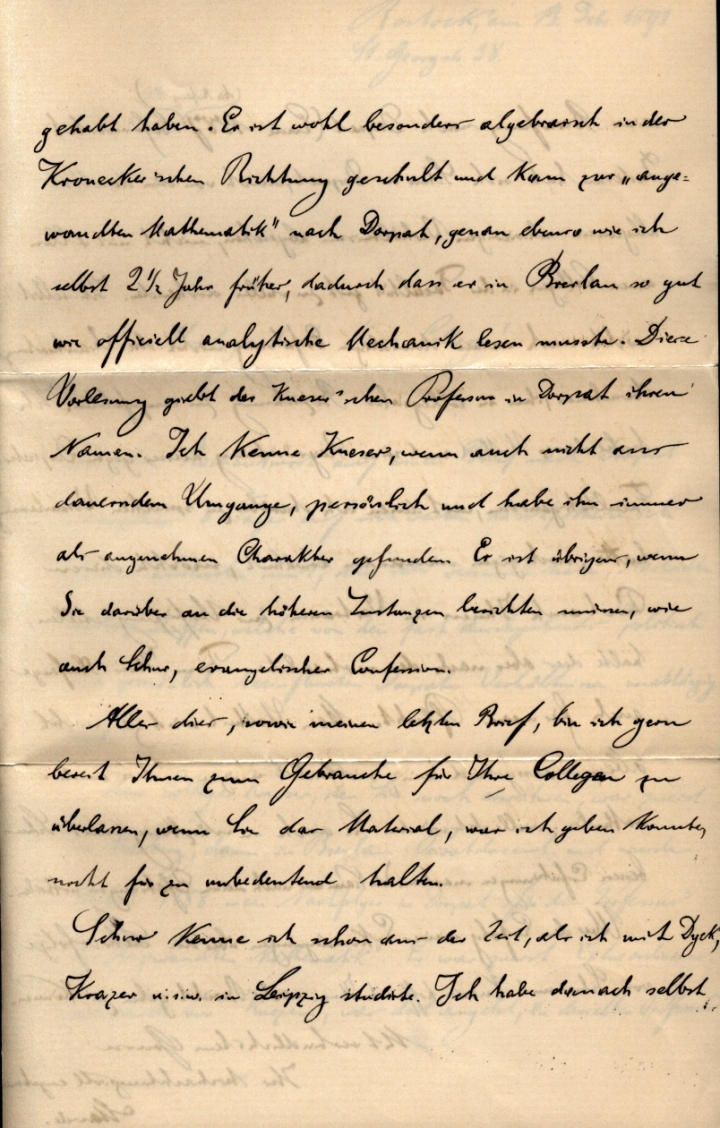 gehabt haben. Er ist wohl besonders algebraisch in der
Kronecker'schen Richtung geschult und kam zur „ange=
wandten Mathematik" nach Dorpat, genau ebenso wie ich
selbst 2 1/2 Jahr früher, dadurch dass er in Breslau so gut
wie officiell analytische Mechanik lesen musste. Diese
Vorlesung giebt der Kneser'schen Professur in Dorpat ihren
Namen. Ich kenne Kneser, wenn auch nicht aus
dauerndem Umgange, persönlich und habe ihn immer
als angenehmen Charakter gefunden. Er ist übrigens, wenn
Sie darüber an die höheren Instanzen berichten müssen, wie
auch Schur, evangelischer Confession.
Alles dies, sowie meinen letzten Brief, bin ich gern
bereit Ihnen zum Gebrauche für Ihre Collegen zu
überlassen, wenn Sie das Material, was ich geben konnte,
nicht für zu unbedeutend halten.
Schur kenne ich schon aus der Zeit, als ich mit Dyck,
Krazer u.s.w. in Leipzig studirte. Ich habe danach selbst